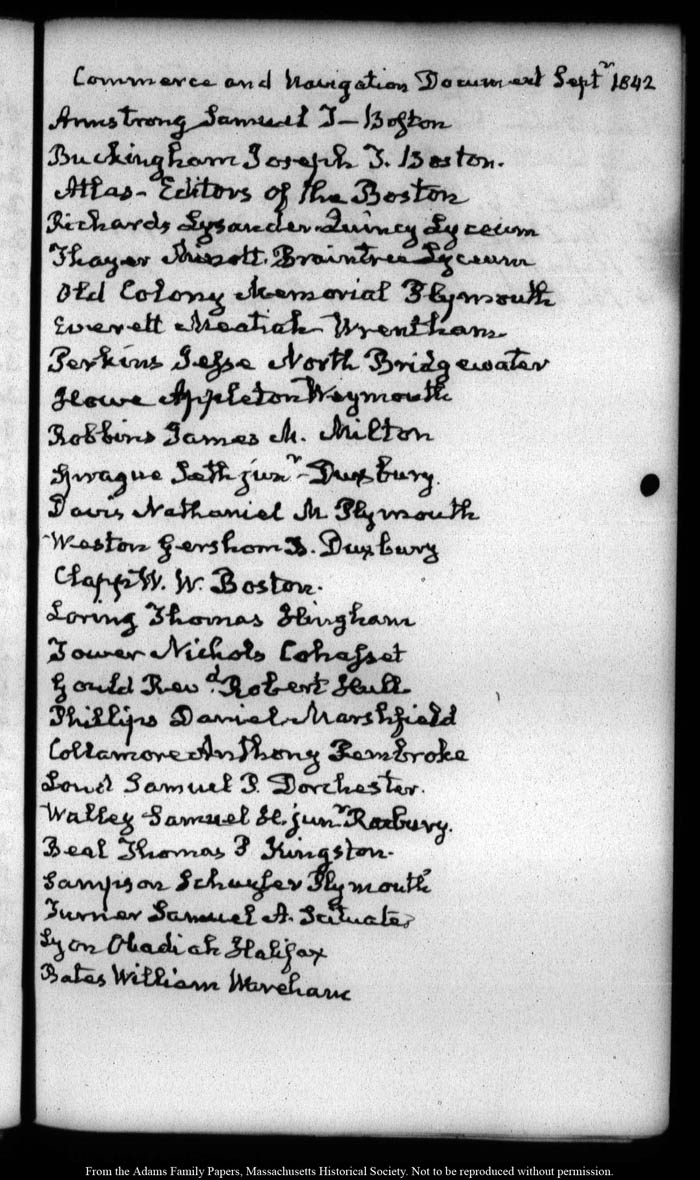 Commerce and Navigation Document Septr 1842
Armstrong Samuel T— Boston
Buckingham Joseph T. Boston.
Atlas- Editors of the Boston
Richards Lysander Quincy Lyceum
Thayer Minott. Braintree Lyceum
Old Colony Memorial Plymouth
Everett Meatiah Wrentham
Perkins Jesse North Bridgewater
Howe Appleton Weymouth
Robbins James M. Milton
Sprague Seth junr- Duxbury.
Davis Nathaniel M Plymouth
Weston Gershom B. Duxbury
Clapp W. W. Boston.
Loring Thomas Hingham
Tower Nichols Cohasset
Gould Revd. Robert Hull
Phillips Daniel Marshfield
Collamore Anthony Pembroke
Loud Samuel P. Dorchester.
Walley Samuel H. junr Roxbury.
Beal Thomas P Kingston.
Sampson Schuyler Plymouth
Turner Samuel A. Scituate
Lyon Obadiah Halifax
Bates William Wareham
From the Adams Family Papers, Massachusetts Historical Society. Not to be reproduced without permission.